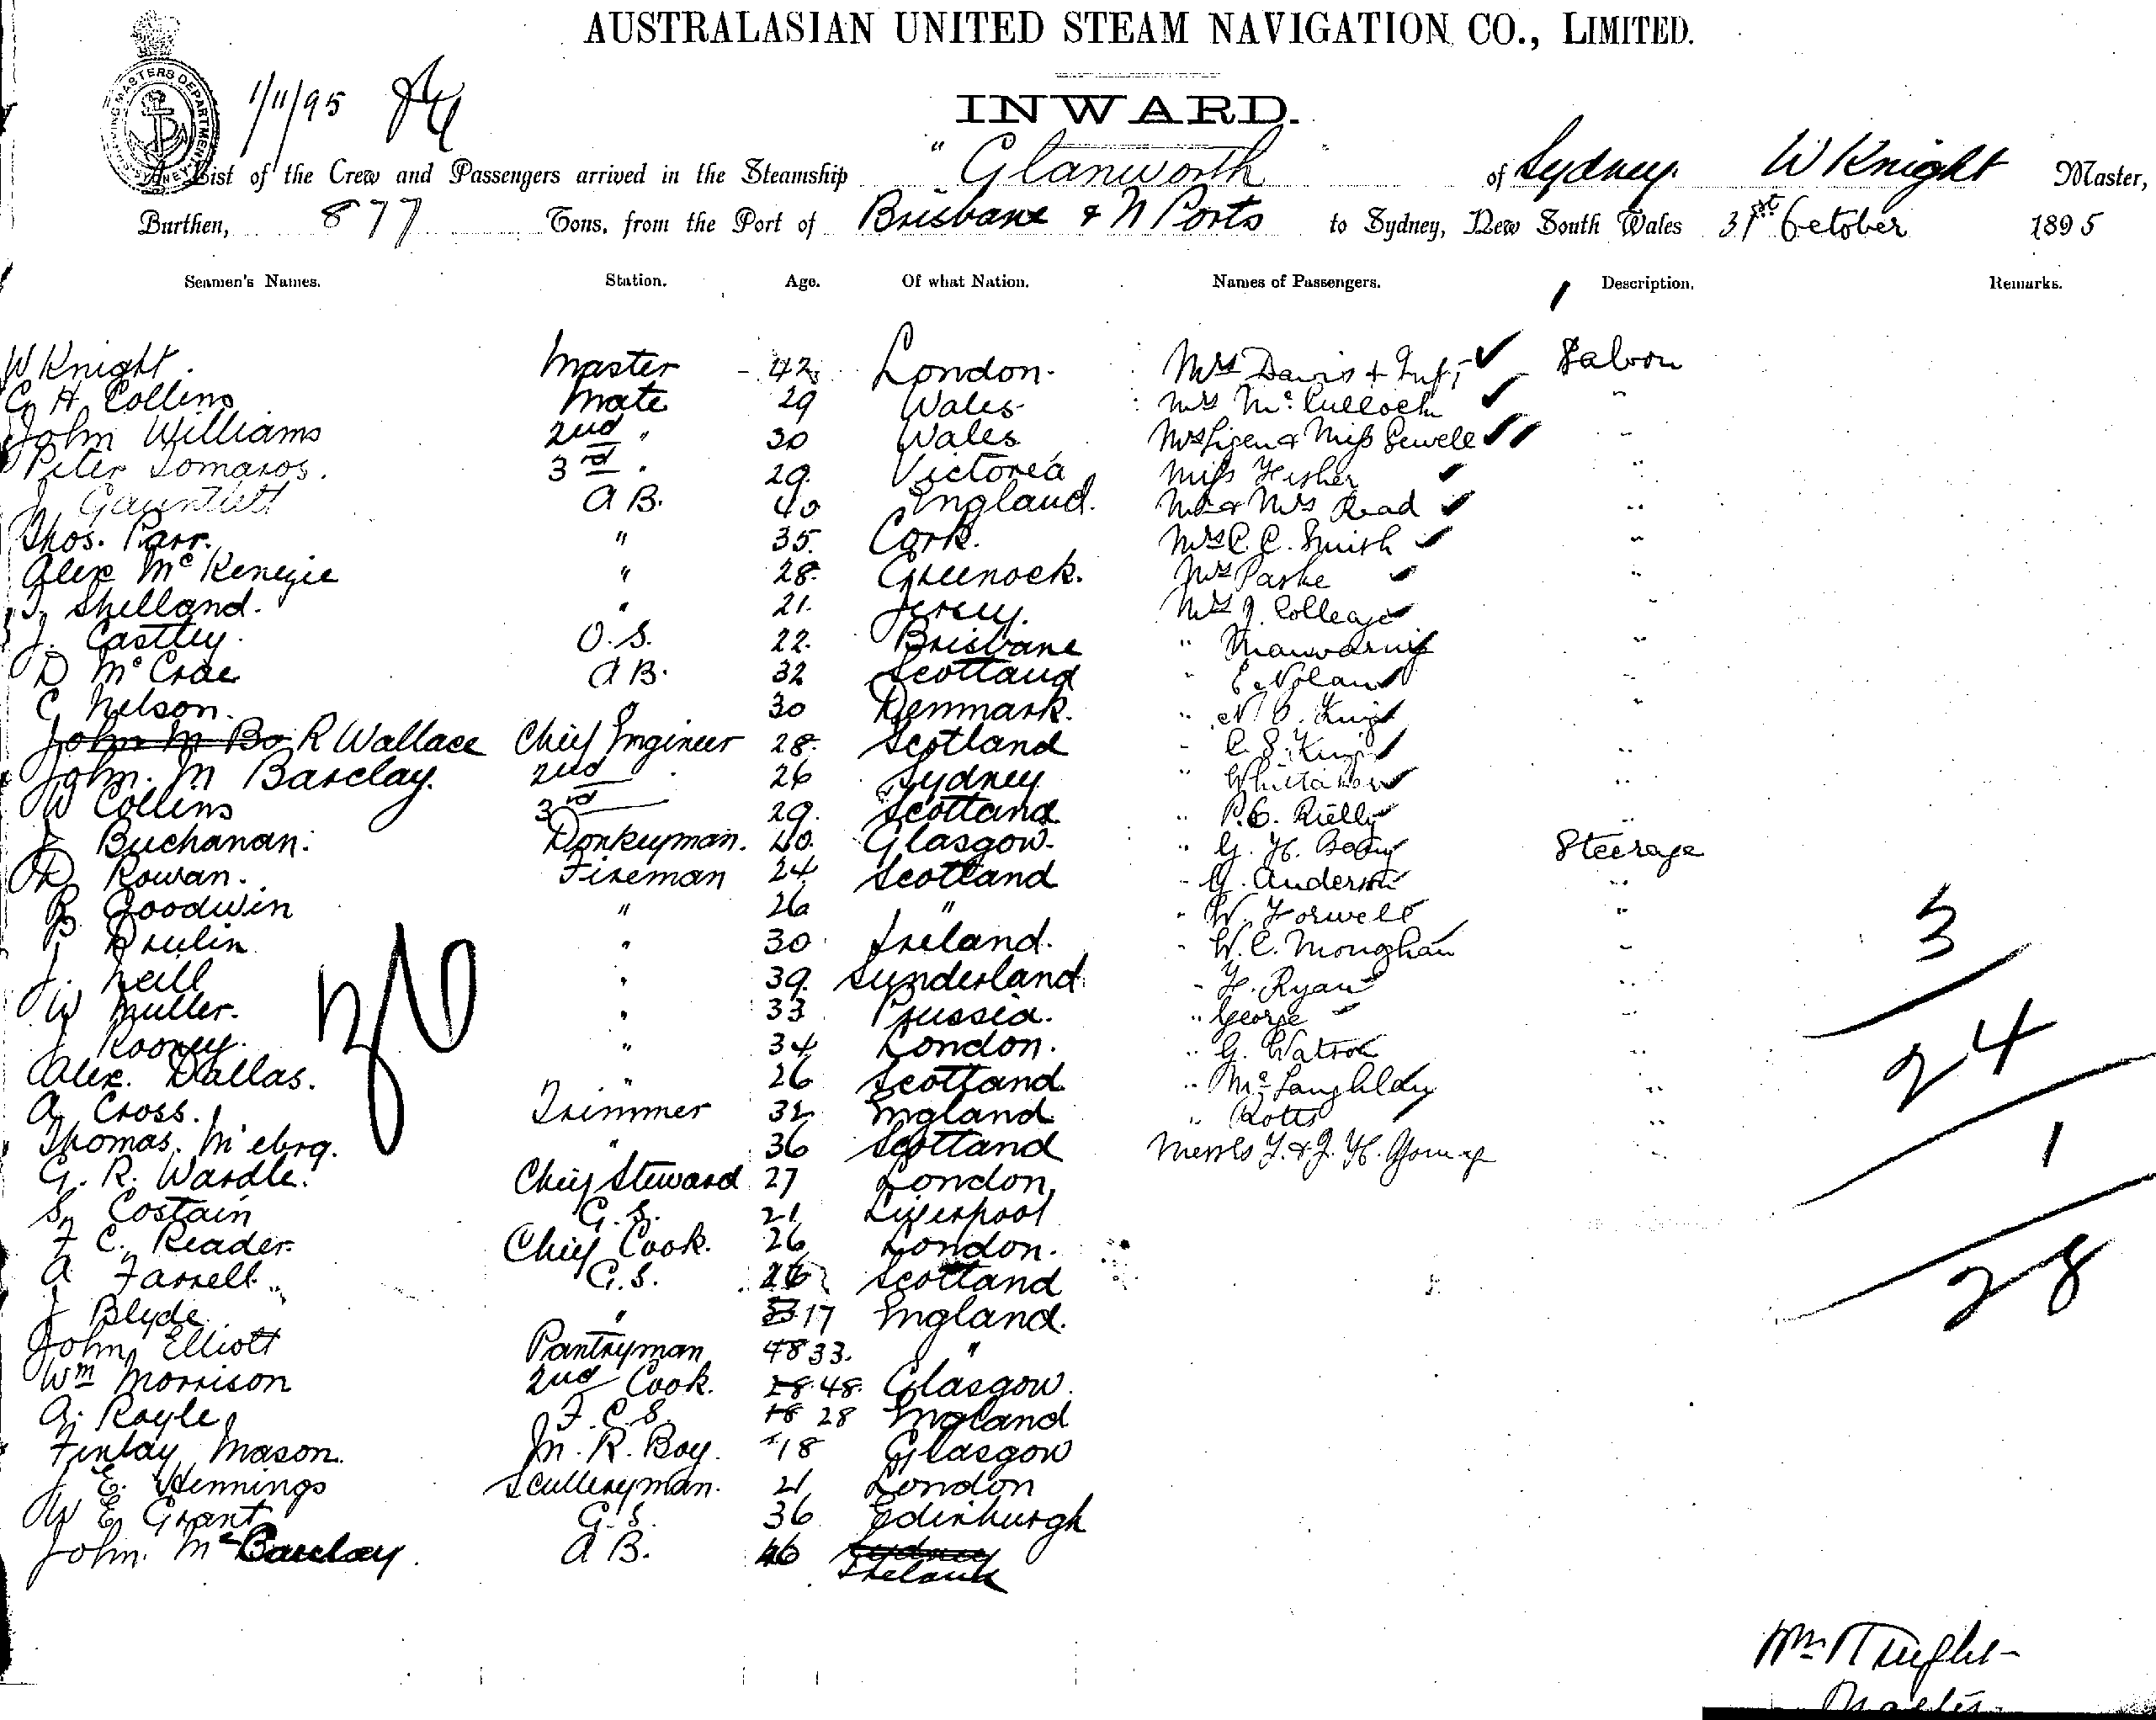 AUSTRALASIAN UNITED STEAM NAVIGATION CO., LIMITED.
1/11/95
INWARD.
A List of the Crew and Passengers arrived in the Steamship "Glanworth" of Sydney. W Knight Master,
Burthen, 877 Tons, from the Port of Brisbane & N Ports to Sydney, New South Wales 31st October 1895
Seamen's Names. Station. Age. Of what Nation. Names of Passengers. Description. Remarks.
W Knight. Master 42 London. Mrs Davis & Inft Saloon
C H Collins Mate 29 Wales Mrs McCulloch "
John Williams 2nd " 30 Wales Mrs & Miss Sewell "
Peter Lomaros. 3rd " 29 Victorea Miss Fisher "
J Gauntlett A B. 40 England. Mr & Mrs Read "
Thos. Parr. " 35. Cork. Mrs C. C. Smith "
Alex McKenezie " 28. Greenock. Mrs Paske "
J. Shelland. " 21. Jersey. Mrs J. College "
J. Castley. O.S. 22. Brisbane " Manwaring "
D McCrae A B. 32 Scotland " E. Nolan "
C Nelson. " 30 Denmark. " N. O. King "
John M Ba R Wallace Chief Engineer 28. Scotland " C. S. King "
John. M Barclay. 2nd 26 Sydney " Whittaker "
W Collins 3rd 29. Scotland " P. C. Rielly "
J Buchanan. Donkeyman. 40. Glasgow. " G. H. Steerage
D Rowan. Fireman 24 Scotland " G. Anderson "
R Goodwin " 26 " " W. Forwell "
P Drulin " 30 Ireland. " W. C. Moughan "
J. Neill " 39. Sunderland. " F. Ryan "
W Muller. " 33 Prussia. " George "
J Rooney. " 34 London. " G. Watson "
Alex. Dallas. " 26 Scotland " McLaughlan "
A Cross. Trimmer 32 England " Potts "
Thomas. " 36 Scotland Messrs F. & J. H. Young "
G. R. Wardle. Chief Steward 27 London
S. Costain G.S. 21 Liverpool
F C. Reader. Chief Cook. 26 London.
A Farrell. G.S. 26 Scotland
J Blyde. " 17 England.
John Elliott Pantryman 48 33. "
Wm Morrison 2nd Cook. 28. 48. Glasgow.
A. Royle F.C.S. 18 28 England
Finlay Mason. M. R. Boy. 18 Glasgow
J E. Hennings Sculleryman. 21 London
W E. Grant G.S. 36 Edinburgh
John. Mc Barclay. A B. 46 Sydney
Ireland
36
3
24
1
28
Wm Knight
Master